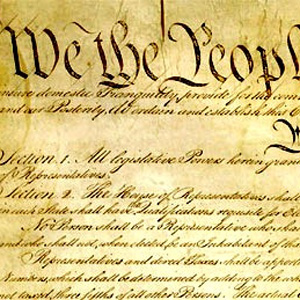 We the Peopl
insure domestic Tranquility, provide for the com
and our Posterity, do ordain and establish this C
Section. 1. All legislative Powers herein gran
of Representatives.
Section. 2. The House of Representatives shal
in each State shall have the Qualifications requisite for E
No Person shall be a Representative who sha
and who shall not, when elected, be an Inhabitant of tha
Representatives and direct Taxes shall be appor
Numbers, which shall be determined by adding to the
not taxed, three fifths of all other Persons. The actual